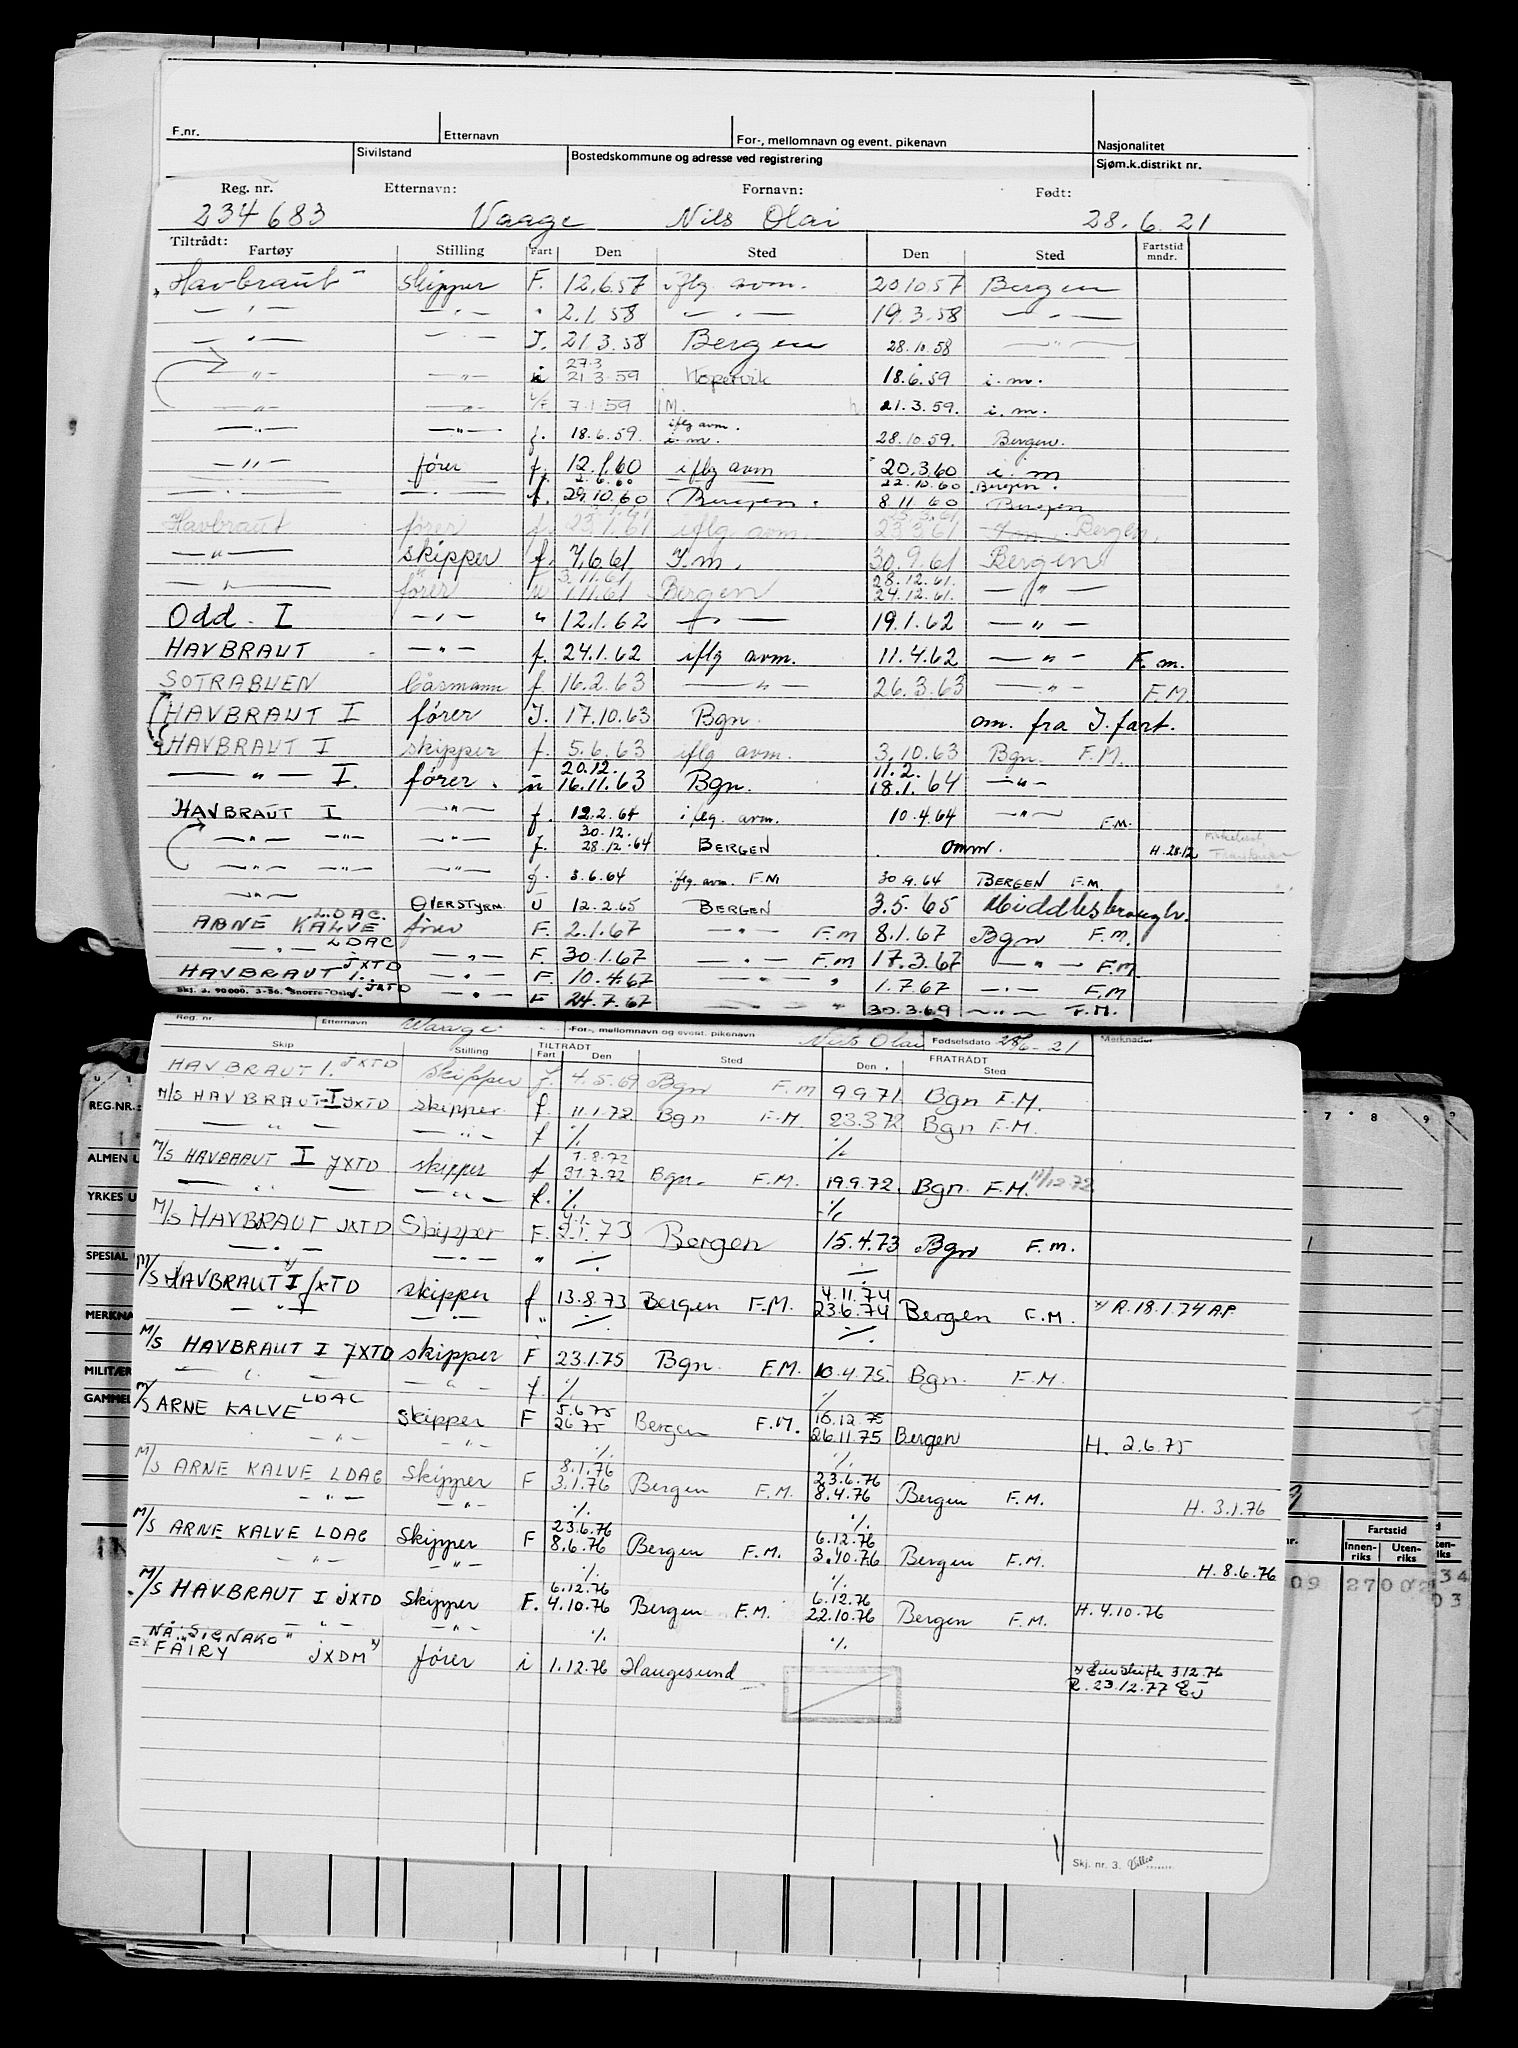 F.nr. Etternavn For-, mellomnavn og event. pikenavn Nasjonalitet
Sivilstand Bostedskommune og adresse ved registrering Sjøm.k.distrikt nr.
Reg. nr. Etternavn: Fornavn: Født:
234683 Vaage Nils Olai 28.6.21
Tiltrådt:
Fartøy Stilling Fart Den Sted Den Sted Fartstid mndr.
"Havbraut" skipper F. 12.6.57 iflg avm. 20.10.57 Bergen
— " — — " — " 2.1.58 — " — 19.3.58 — " —
— " — — " — I. 21.3.58 Bergen 28.10.58 — " —
27.3
— " — — " — i 21.3.59 Kopervik 18.6.59 i.m.
— " — — " — 7.1.59 I M. 21.3.59. i.m.
— " — — " — f. 18.6.59. iflg avm. i.m. 28.10.59. Bergen.
— " — fører f. 12.1.60 iflg avm 20.3.60 i.m
2.6.60 22.10.60 Bergen.
— " — — " — f. 29.10.60 Bergen. 8.11.60 Bergen
Havbraut fører f. 23.1.61 iflg avm. 23.3.61 Bergen.
— " — skipper f. 7.6.61 I.m. 30.9.61 Bergen
3.11.61 28.12.61.
— " — fører u 1.11.61 Bergen 24.12.61. — " —
Odd I — " — " 12.1.62 — " — 19.1.62 — " —
HAVBRAUT — " — f. 24.1.62 iflg avm. 11.4.62 — " — F.m.
SOTRABUEN Båsmann f. 16.2.63 — " — 26.3.63 — " — F.M.
HAVBRAUT I fører I. 17.10.63 Bgn. om. fra I. fart.
HAVBRAUT I skipper f. 5.6.63 iflg avm. 3.10.63 Bgn. F.M.
20.12. 11.2.
— " — I. fører. u 16.11.63 Bgn. 18.1.64 — " —
HAVBRAUT I — " — f. 12.2.64 iflg. avm. 10.4.64 — " — F.M.
30.12.
— " — — " — — " — f. 28.12.64 BERGEN omm. H. 28.12
— " — — " — — " — f. 3.6.64 iflg. avm. F.M 30.9.64 BERGEN F.M.
— " — OVERSTYRM. U 12.2.65 BERGEN 3.5.65 Middlesbrough.
ARNE KALVE LDAC. fører F. 2.1.67 — " — F.M 8.1.67 Bgn F.M.
— " — LDAC — " — F. 30.1.67 — " — F.M 17.3.67 — " — F.M.
HAVBRAUT I. JXTD — " — F. 10.4.67 — " — " 1.7.67 — " — F.M
JXTD — " — F 24.7.67 — " — " 30.3.69 — " — F.M.
Skj. 3. 90 000. 3-56. Snorre-Oslo
Reg. nr Etternavn Waage For-, mellomnavn og event. pikenavn Nils Olai Fødselsdato 28/6-21 Merknader
TILTRÅDT FRATRÅDT
Skip Stilling Fart Den Sted Den Sted
HAVBRAUT I. JXTD skipper f. 4.5.69 Bgn F.M 9.9.71. Bgn F.M.
M/S HAVBRAUT I JXTD skipper f. 11.1.72 Bgn F.M. 23.3.72 Bgn F.M.
— " — — " — f ./. ./.
1.8.72
M/S HAVBRAUT I JXTD skipper f 31.7.72 Bgn. F.M. 19.9.72. Bgn. F.M. 11/12-72
— " — — " — f. ./. ./.
M/S HAVBRAUT JXTD Skipper F. 2.1.73 Bergen 15.4.73 Bgn F.M.
— " — — " — " ./. ./.
4.11.74
M/S HAVBRAUT I JXTD skipper f 13.8.73 Bergen F.M. 23.6.74 Bergen F.M. x/ R.18.1.74 A.P
— " — — " — " ./. ./.
M/S HAVBRAUT I JXTD skipper F 23.1.75 Bgn. F.M. 10.4.75. Bgn. F.M.
— " — — " — f. ./. ./.
5.6.75 16.12.75
M/S ARNE KALVE LDAC skipper F 2.6.75 Bergen F.M. 26.11.75 Bergen H. 2.6.75
— " — — " — ./. ./.
8.1.76 23.6.76
M/S ARNE KALVE LDAG Skipper F 3.1.76 Bergen F.M. 8.4.76 Bergen F.M. H. 3.1.76
— " — — " — ./. ./.
23.6.76 6.12.76
M/S ARNE KALVE LDAG Skipper F 8.6.76 Bergen F.M. 3.10.76 Bergen F.M. H. 8.6.76
— " — — " — ./. ./.
6.12.76 6.12.76
M/S HAVBRAUT I JXTD Skipper F. 4.10.76 Bergen F.M. 22.10.76 Bergen F.M. H. 4.10.76
— " — — " — ./. ./.
NÅ: "SIGNAKO"
EX FAIRY JXDM x/ fører i 1.12.76 Haugesund x/ Eierskifte 3.12.76
R. 23.12.77 EJ
Skj. nr. 3.
REG.NR.:
ALMEN U
YRKES U
SPESIAL
MERKNA
MILITÆR
GAMMEL
7 8 9
Fartstid
Innen-riks Uten-riks
09 27002 34
03